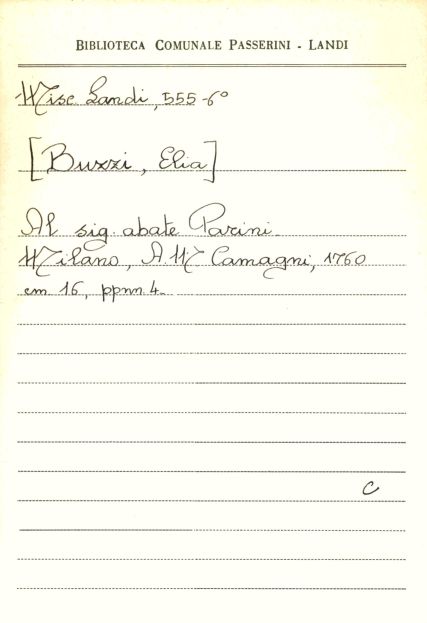 BIBLIOTECA COMUNALE PASSERINI - LANDI
Misc Landi, 555-6°
[Buzzi, Elia]
Al sig. abate Parini.
Milano, A. M. Camagni, 1760
cm. 16, ppnn. 4.
C